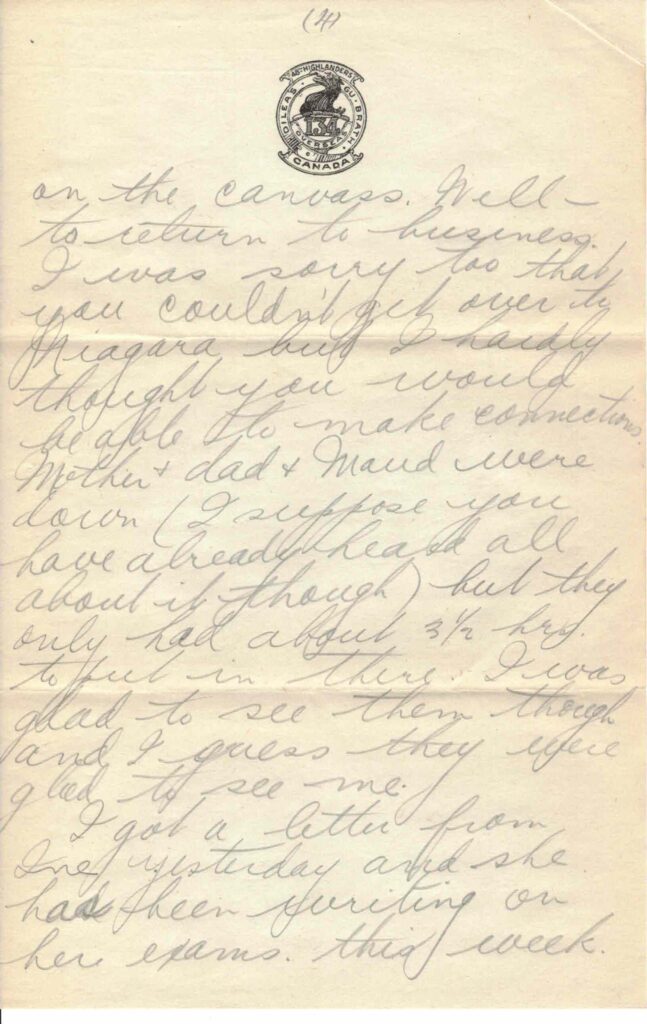 (4)
48TH HIGHLANDERS
DILEAS GU BRATH
134
OVERSEAS
CANADA
on the canvass. Well –
to return to business.
I was sorry too that
you couldn't get over to
Niagara but I hardly
thought you would
be able to make connections.
Mother + dad + Maud were
down (I suppose you
have already heard all
about it though) but they
only had about 3½ hrs.
to put in there. I was
glad to see them though
and I guess they were
glad to see me.
I got a letter from
Ine yesterday and she
had been writing on
her exams. this week.